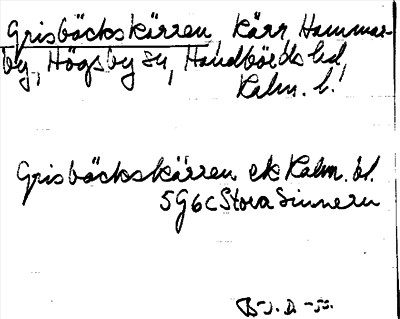 Grisbäckskärren, kärr, Hammar-
by, Högsby sn, Handbörds hd,
Kalm. l.
Grisbäckskärren ek Kalm. bl.
5G6c Stora Sinnern